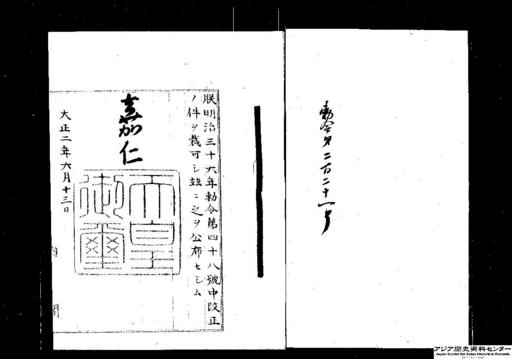 勅令第二百二十一号
朕明治三十六年勅令第四十八號中改正
ノ件ヲ裁可シ茲ニ之ヲ公布セシム
嘉仁
天皇御璽
大正二年六月十三日
アジア歴史資料センター
Japan Center for Asian Historical Records